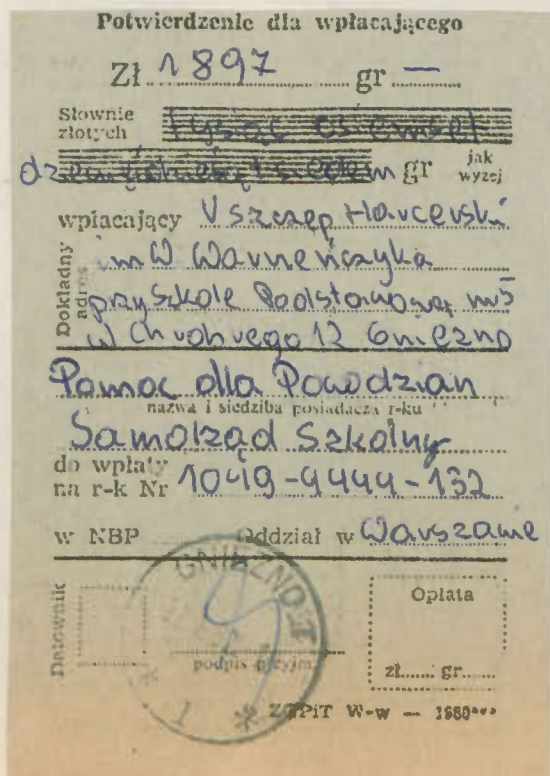 Potwierdzenie dla wpłacającego
Zł 1897 gr —
Słownie złotych tysiąc osiemset
dziewięćdziesiąt siedem gr jak wyżej
wpłacający V szczep Harcerski
Dokładny adres im W Warneńczyka
przy Szkole Podstawowej nr 5
ul Chrobrego 12 Gniezno
Pomoc dla Powodzian
nazwa i siedziba posiadacza r-ku
Samorząd Szkolny
do wpłaty
na r-k Nr 1049-9999-132
w NBP Oddział w Warszawie
Datownik
GNIEZNO
1
podpis przyjm.
Opłata
zł...... gr......
ZGPiT W-w — 1980